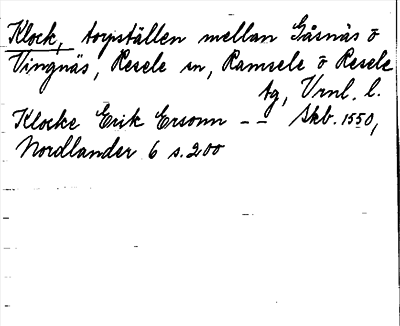 Klock, torpställen mellan Gåsnäs o
Vingnäs, Resele sn, Ramsele o Resele
tg, Vrnl. l.
Klocke Erik Ersonn -- Skb. 1550,
Nordlander 6 s. 200